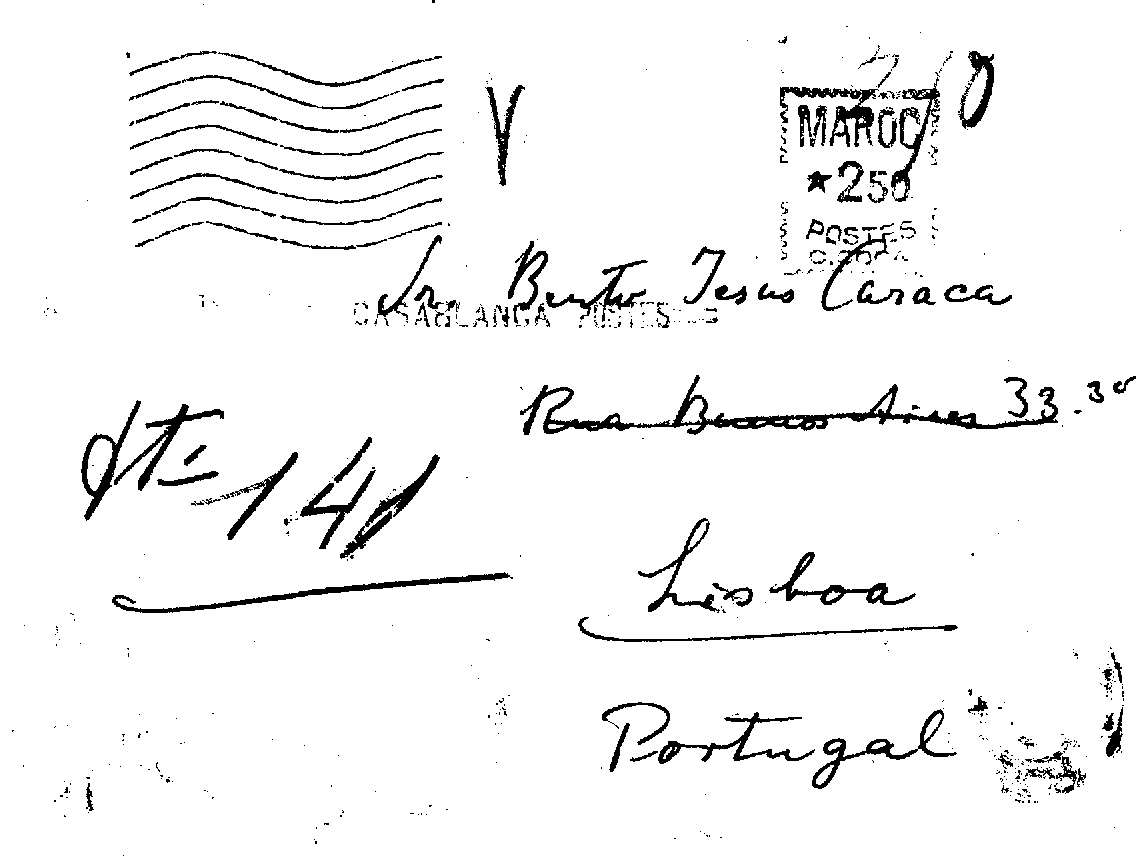 MAROC
★250
POSTES
Sr. Bento Jesus Caraca
CASABLANCA POSTES
Rua Buenos Aires 33.3º
141
Lisboa
Portugal